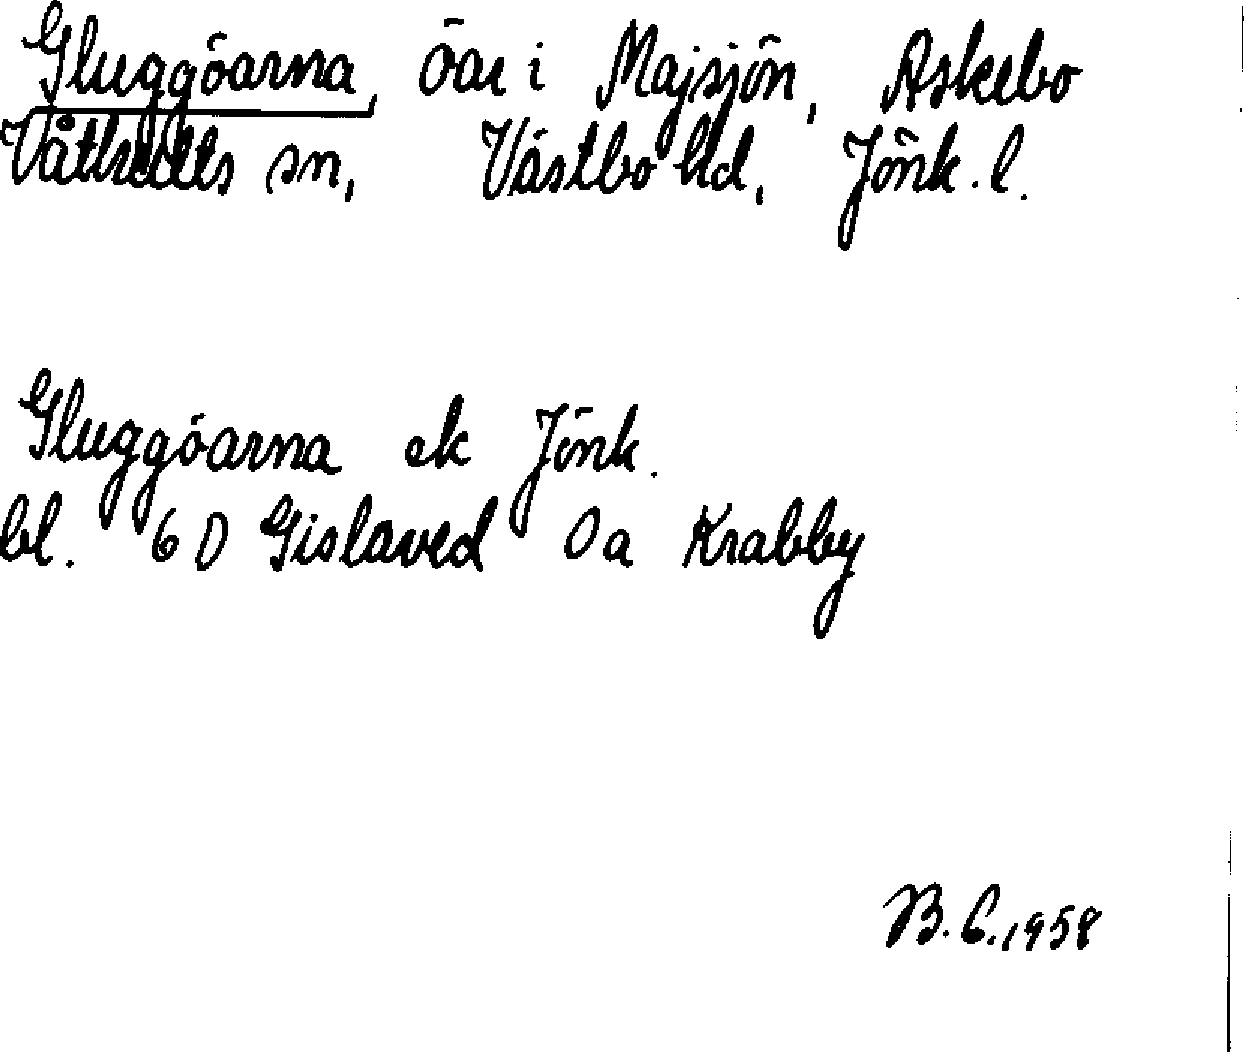 Gluggöarna, öar i Majsjön, Askebo
Våthults sn, Västbo hd, Jönk. l.
Gluggöarna ek Jönk.
bl. 6 D Gislaved 0a Krabby
B. C. 1958